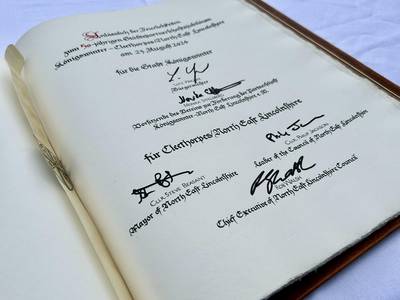 Anlässlich der Feierlichkeiten
zum 50-jährigen Städtepartnerschaftsjubiläum
Königswinter – Cleethorpes/North East Lincolnshire
am 23. August 2024
für die Stadt Königswinter
Bürgermeister
Vorsitzende des Vereins zur Förderung der Partnerschaft
Königswinter-North East Lincolnshire e.V.
für Cleethorpes/North East Lincolnshire
Cllr Steve Beasant
Mayor of North East Lincolnshire
Cllr Philip Jackson
Leader of the Council of North East Lincolnshire
Rob Walsh
Chief Executive of North East Lincolnshire Council